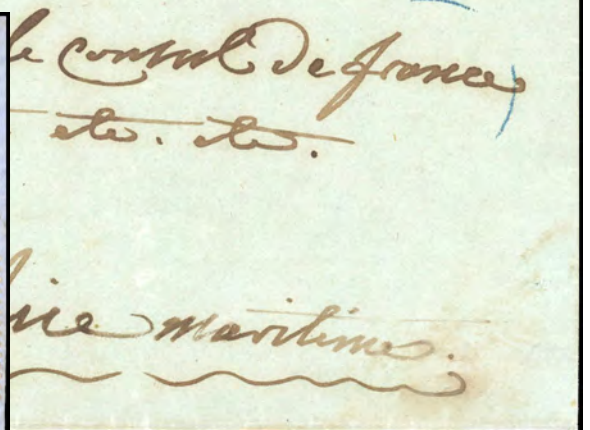 le consul de france
etc. etc.
ice maritime.